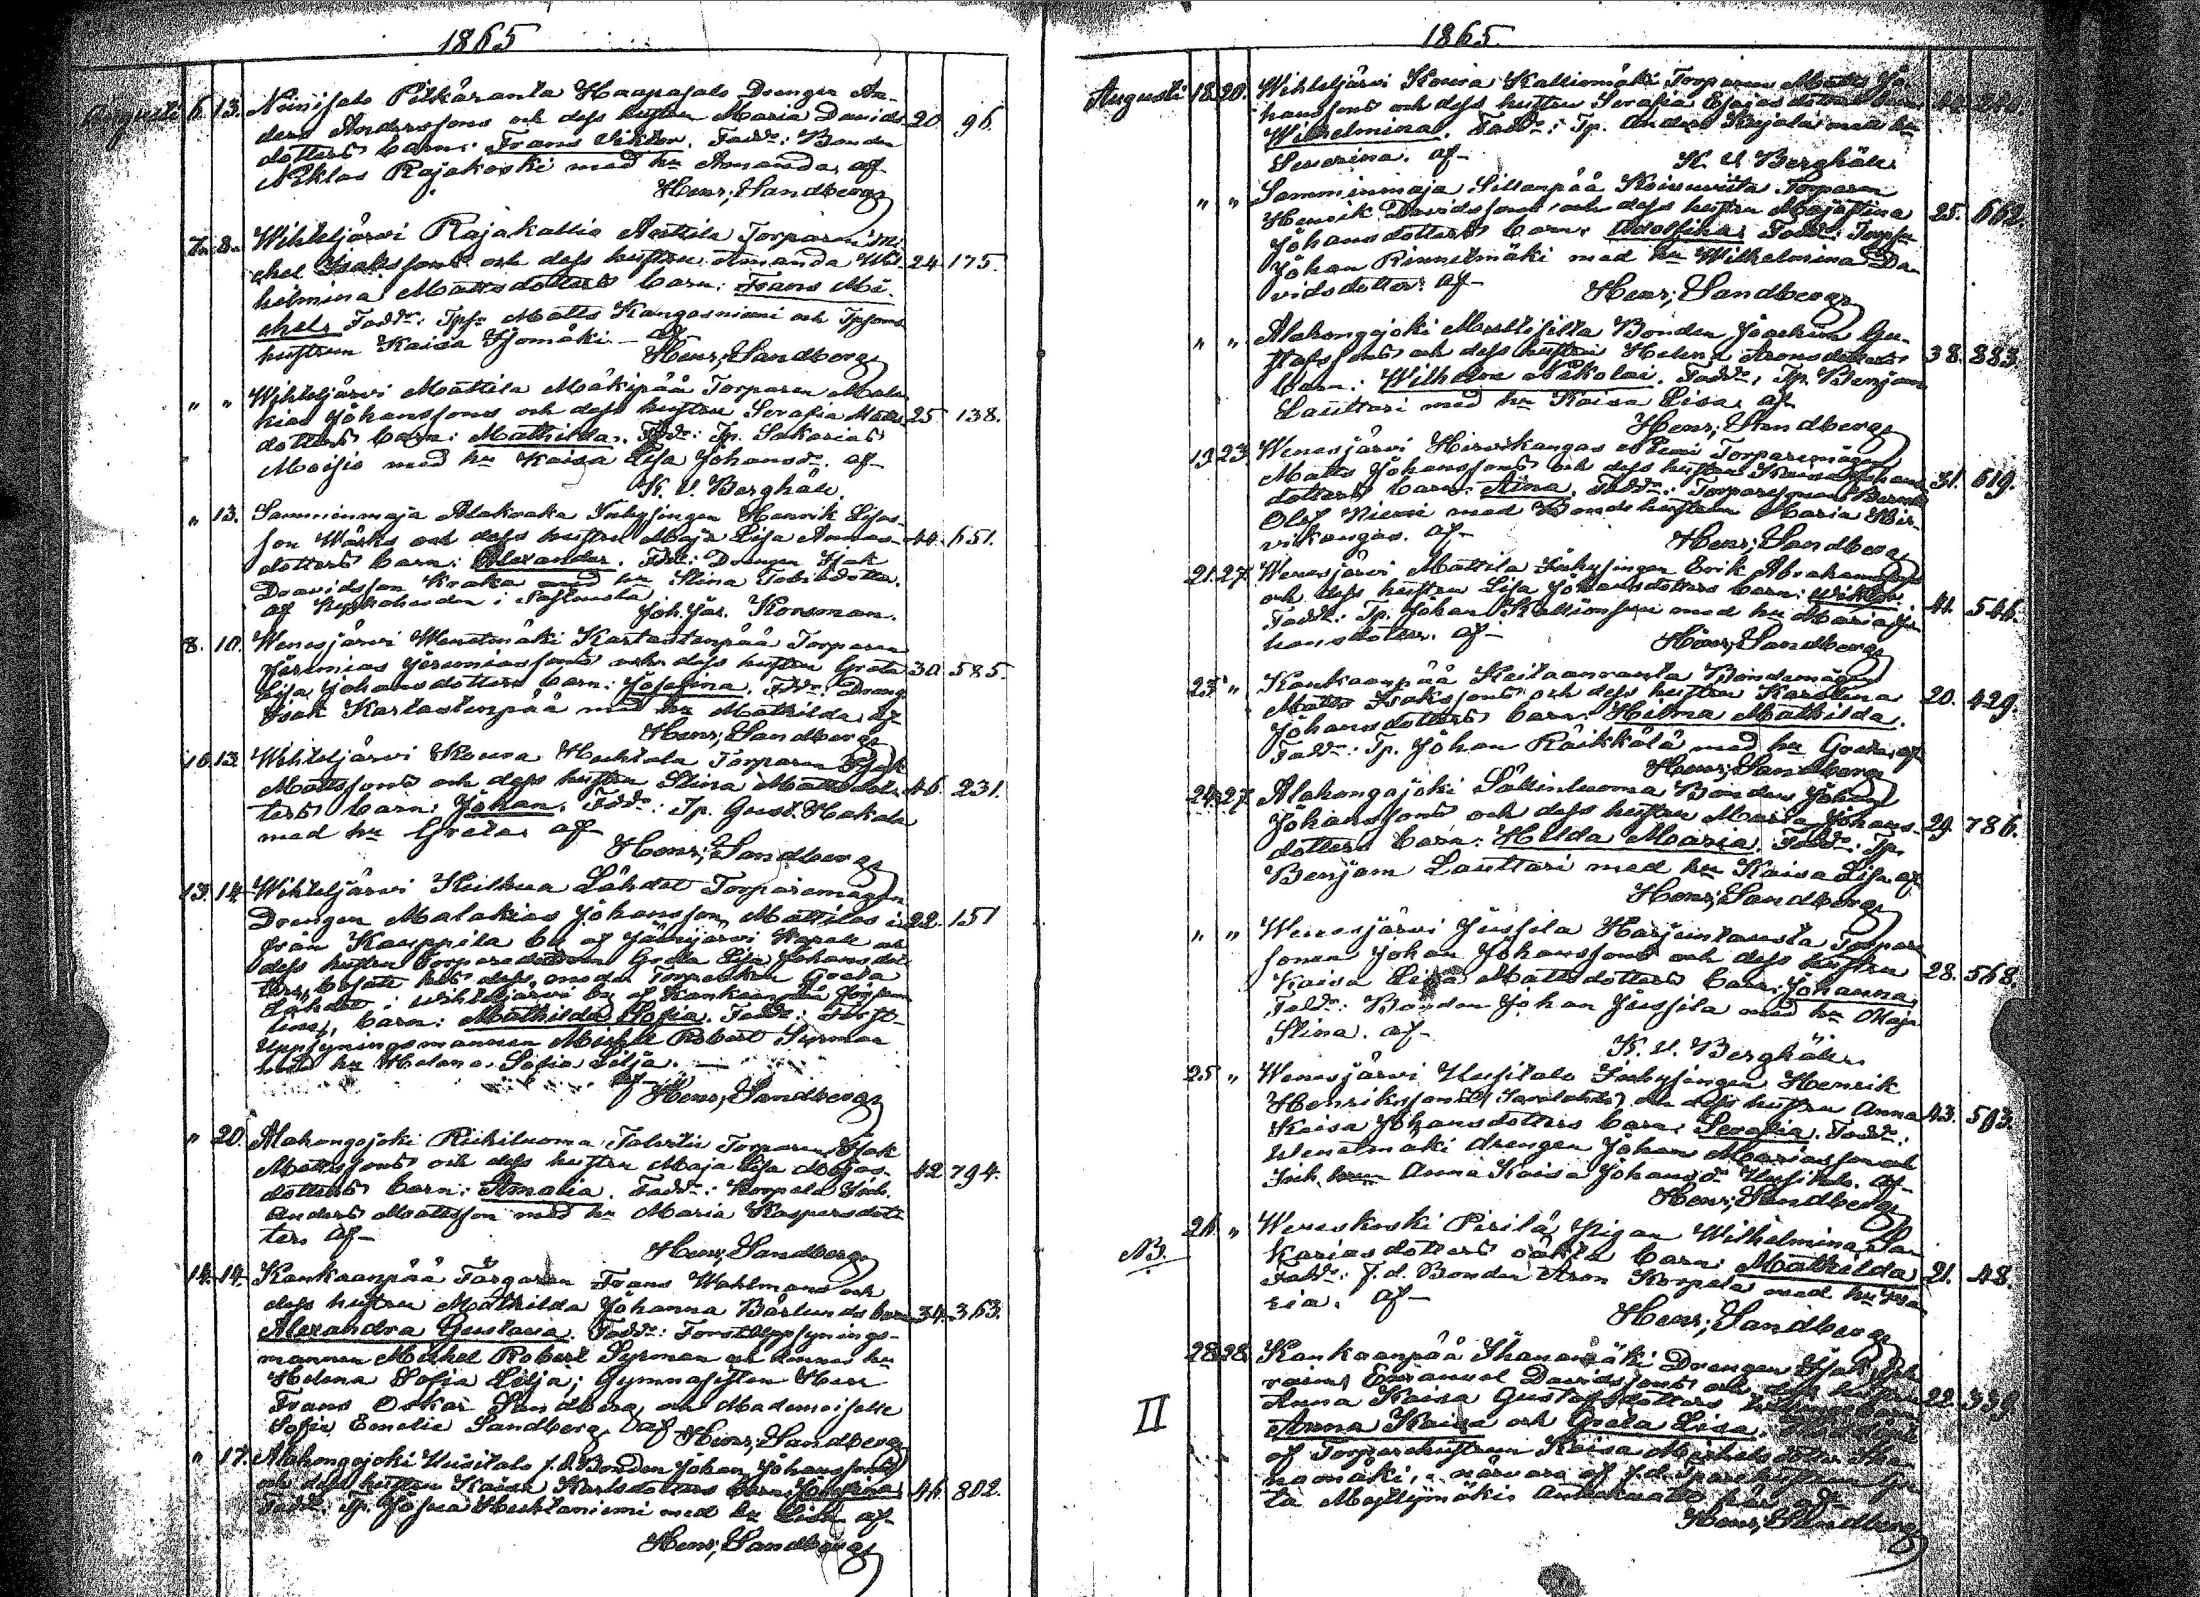 1865
Augusti 6. 13. Niinisalo Pitkäranta Haapasalo Drengen An-
ders Anderssons och dess hustru Maria Davids- 20 96.
dotters barn: Frans Viktor. Fadd:r: Bonden
Niklas Rajakoski med hu Amanda, af
Henr: Sandberg
7. 8. Wihteljärvi Rajakallio Anttila Torparen Mi-
chel Isakssons och dess hustru Amanda Wil- 24 175.
helmina Mattsdotters barn: Frans Mi-
chel, Fadd:r: Matts Kangasniemi och
hustrun Kaisa
Henr: Sandberg
" " Wihteljärvi Mattila Mäkipää Torparen Mala-
kias Johanssons och dess hustru Serafia Matts- 25 138.
dotters barn: Mathilda. Fdd:r: Tp. Sakarias
Moisio med hu Kaisa Lisa Johansd:r. af
K. U. Berghäll.
" 13. Samminmaja Alakraka Inhysingen Henrik
son och dess hustru Maja Lisa Annas- 44. 651.
dotters barn: Alexander. Fdd:r: Drengen Isak
Davidsson Kraka med hu Stina Tobiasdotter.
af Kyrkoherden i
Joh. Jac. Konsman.
8. 10. Wenesjärvi Wenetmäki Kartastenpää Torparen
Jeremias Jeremiassons och dess hustru Greta 30 585.
Lisa Johansdotters barn: Josefina. Fdd:r: Dreng
Isak Kartastenpää med hu Mathilda, af
Henr: Sandberg
10. 13. Wihteljärvi Kouva Huhtala Torparen Isak
Mattssons och dess hustru Stina Mattsdot- 46. 231.
ters barn: Johan. Fdd:r: Tp. Gust. Hakala
med hu Greta, af
Henr: Sandberg
13. 14. Wihteljärvi Huikua Lähdet Torparemågen
Drengen Malakias Johansson Mattilas i 22. 151
från Kauppila by af Jämijärvi Kapell och
dess hustru Torparedottren Greta Lisa Johansdot-
ters, bosatt hos dess moder Torpenkan Greta
Lähdet i Wihteljärvi by af Kankaanpää
barn: Mathilda Sofia. Fadd:r: Forst-
Uppsyningsmannen Mickel Robert Syrman
med hu Helena Sofia Lilja.
af
Henr: Sandberg
" 20. Alahongojoki Riihiluoma Torparen Isak
Mattssons och dess hustru Maja Lisa 42 794.
dotters barn: Amalia. Fadd:r: Korpela Inh.
Anders Mattsson med hu Maria Kaspersdot-
ter. af
Henr: Sandberg
14. 14. Kankaanpää Färgaren Frans Wahlmans och
dess hustru Mathilda Johanna Bärlunds barn 34. 363.
Alexandra Gustava. Fadd:r: ForstUppsynings-
mannen Mickel Robert Syrman och dennes hu
Helena Sofia Lilja; Gymnasisten Herr
Frans Oskar Sandberg och Mademoiselle
Sofie Emelie Sandberg. af Henr: Sandberg
" 17. Alahongojoki Uusitalo f.d. Bonden Johan Johanssons
och dess hustru Kaisa Karlsdotters barn: Johanna 46. 802.
Fadd:r: Tp. Josua Huhtaniemi med hu Lisa af
Henr: Sandberg
1865.
Augusti 18. 20. Wihteljärvi Kouva Kalliomäki Torparen Matts Jo-
hanssons och dess hustru Serafia Esajasdotters barn
Wilhelmina. Fadd:r: Tp. Anders Kujala med hu
Severina. af
K. U. Berghäll.
" " Samminmaja Sillanpää Torparen
Henrik Davidssons och dess hustru Majastina 25. 662.
Johansdotters barn: Adolfina. Fadd:r:
Johan Rinnetmäki med hu Wilhelmina Da-
vidsdotter. af
Henr: Sandberg
" " Alahongojoki Bonden Joachim Gu-
stafssons och dess hustru Helena Aronsdotters 38. 883.
barn: Wilhelm Nikolai. Fadd:r: Tp. Benjam
Lauttari med hu Kaisa Lisa, af
Henr: Sandberg
19. 23. Wenesjärvi Hirvikangas Niemi Torparemågen
Matts Johanssons och dess hustru Kaisa Johans- 31. 619.
dotters barn: Aina. Fadd:r:
Olof Niemi med Bondehustrun Maria Hir-
vikangas. af
Henr: Sandberg
21. 27. Wenesjärvi Mattila Inhysingen Erik Abrahamssons
och dess hustru Lisa Johansdotters barn: Wiktor. 41. 546.
Fadd:r: Tp. Johan med hu Maria Jo-
hansdotter. af
Henr: Sandberg
23 " Kankaanpää Keitaanranta Bondemågen
Matts Isakssons och dess hustru Karolina 20. 429.
Johansdotters barn: Hilma Mathilda.
Fadd:r: Tp. Johan Räikkälä med hu Greta, af
Henr: Sandberg
24. 27. Alahongojoki Sällinluoma Bonden Johan
Johanssons och dess hustru Maria Johans- 29. 786.
dotters barn: Hilda Maria. Fadd:r: Tp.
Benjam Lauttari med hu Kaisa Lisa, af
Henr: Sandberg
" " Wenesjärvi Jussila Harjuntausta Torpare-
sonen Johan Johanssons och dess hustru 28. 568.
Kaisa Lisa Mattsdotters barn: Johanna
Fadd:r: Bonden Johan Jussila med hu Maja
Stina. af
K. U. Berghäll.
25 " Wenesjärvi Uusitalo Inhysingen Henrik
Henrikssons och dess hustru Anna 43. 593.
Kaisa Johansdotters barn: Serafia. Fadd:r:
Wenetmäki drengen Johan och
Inh. Anna Kaisa Johansd:r Uusitalo. af
Henr: Sandberg
26. " Weneskoski Pirilä Pigan Wilhelmina Sa-
NB. kariasdotters oäkta barn: Mathilda 21. 48.
Fadd:r: f.d. Bonden Aron Korpela med hu Ma-
ria. af
Henr: Sandberg
28. 28. Kankaanpää Drengen Isak
Emanuel Davidssons och dess hustru
II Anna Kaisa Gustafsdotters 22. 339.
Anna Kaisa och Greta Lisa.
af Torparehustrun Kaisa Michelsdotter
närvaro af f.d.
af
Henr: Sandberg